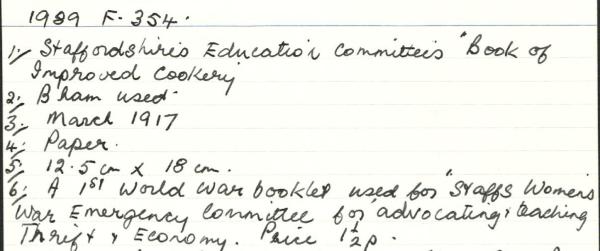 1989 F. 354.
1; Staffordshires Education Committees "Book of
Improved Cookery
2; B'ham used.
3; March 1917
4; Paper.
5; 12.5 cm x 18 cm.
6; A 1st World War booklet used for "Staffs Womens
War Emergency Committee for advocating & teaching
Thrift & Economy. Price 1½p.